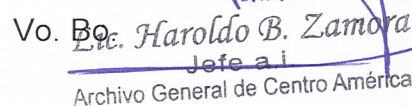 Vo. Bo.
Lic. Haroldo B. Zamora
Jefe a.i.
Archivo General de Centro América